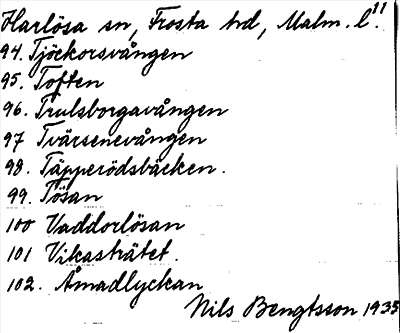 Harlösa sn, Frosta hd, Malm. l. 11
94. Tjöckorsvången
95. Toften
96. Trulsborgavången
97 Tvärsenevången
98. Täpperödsbäcken.
99. Tösan
100 Vaddorlösan
101 Vikasträtet.
102. Åmadlyckan
Nils Bengtsson 1935